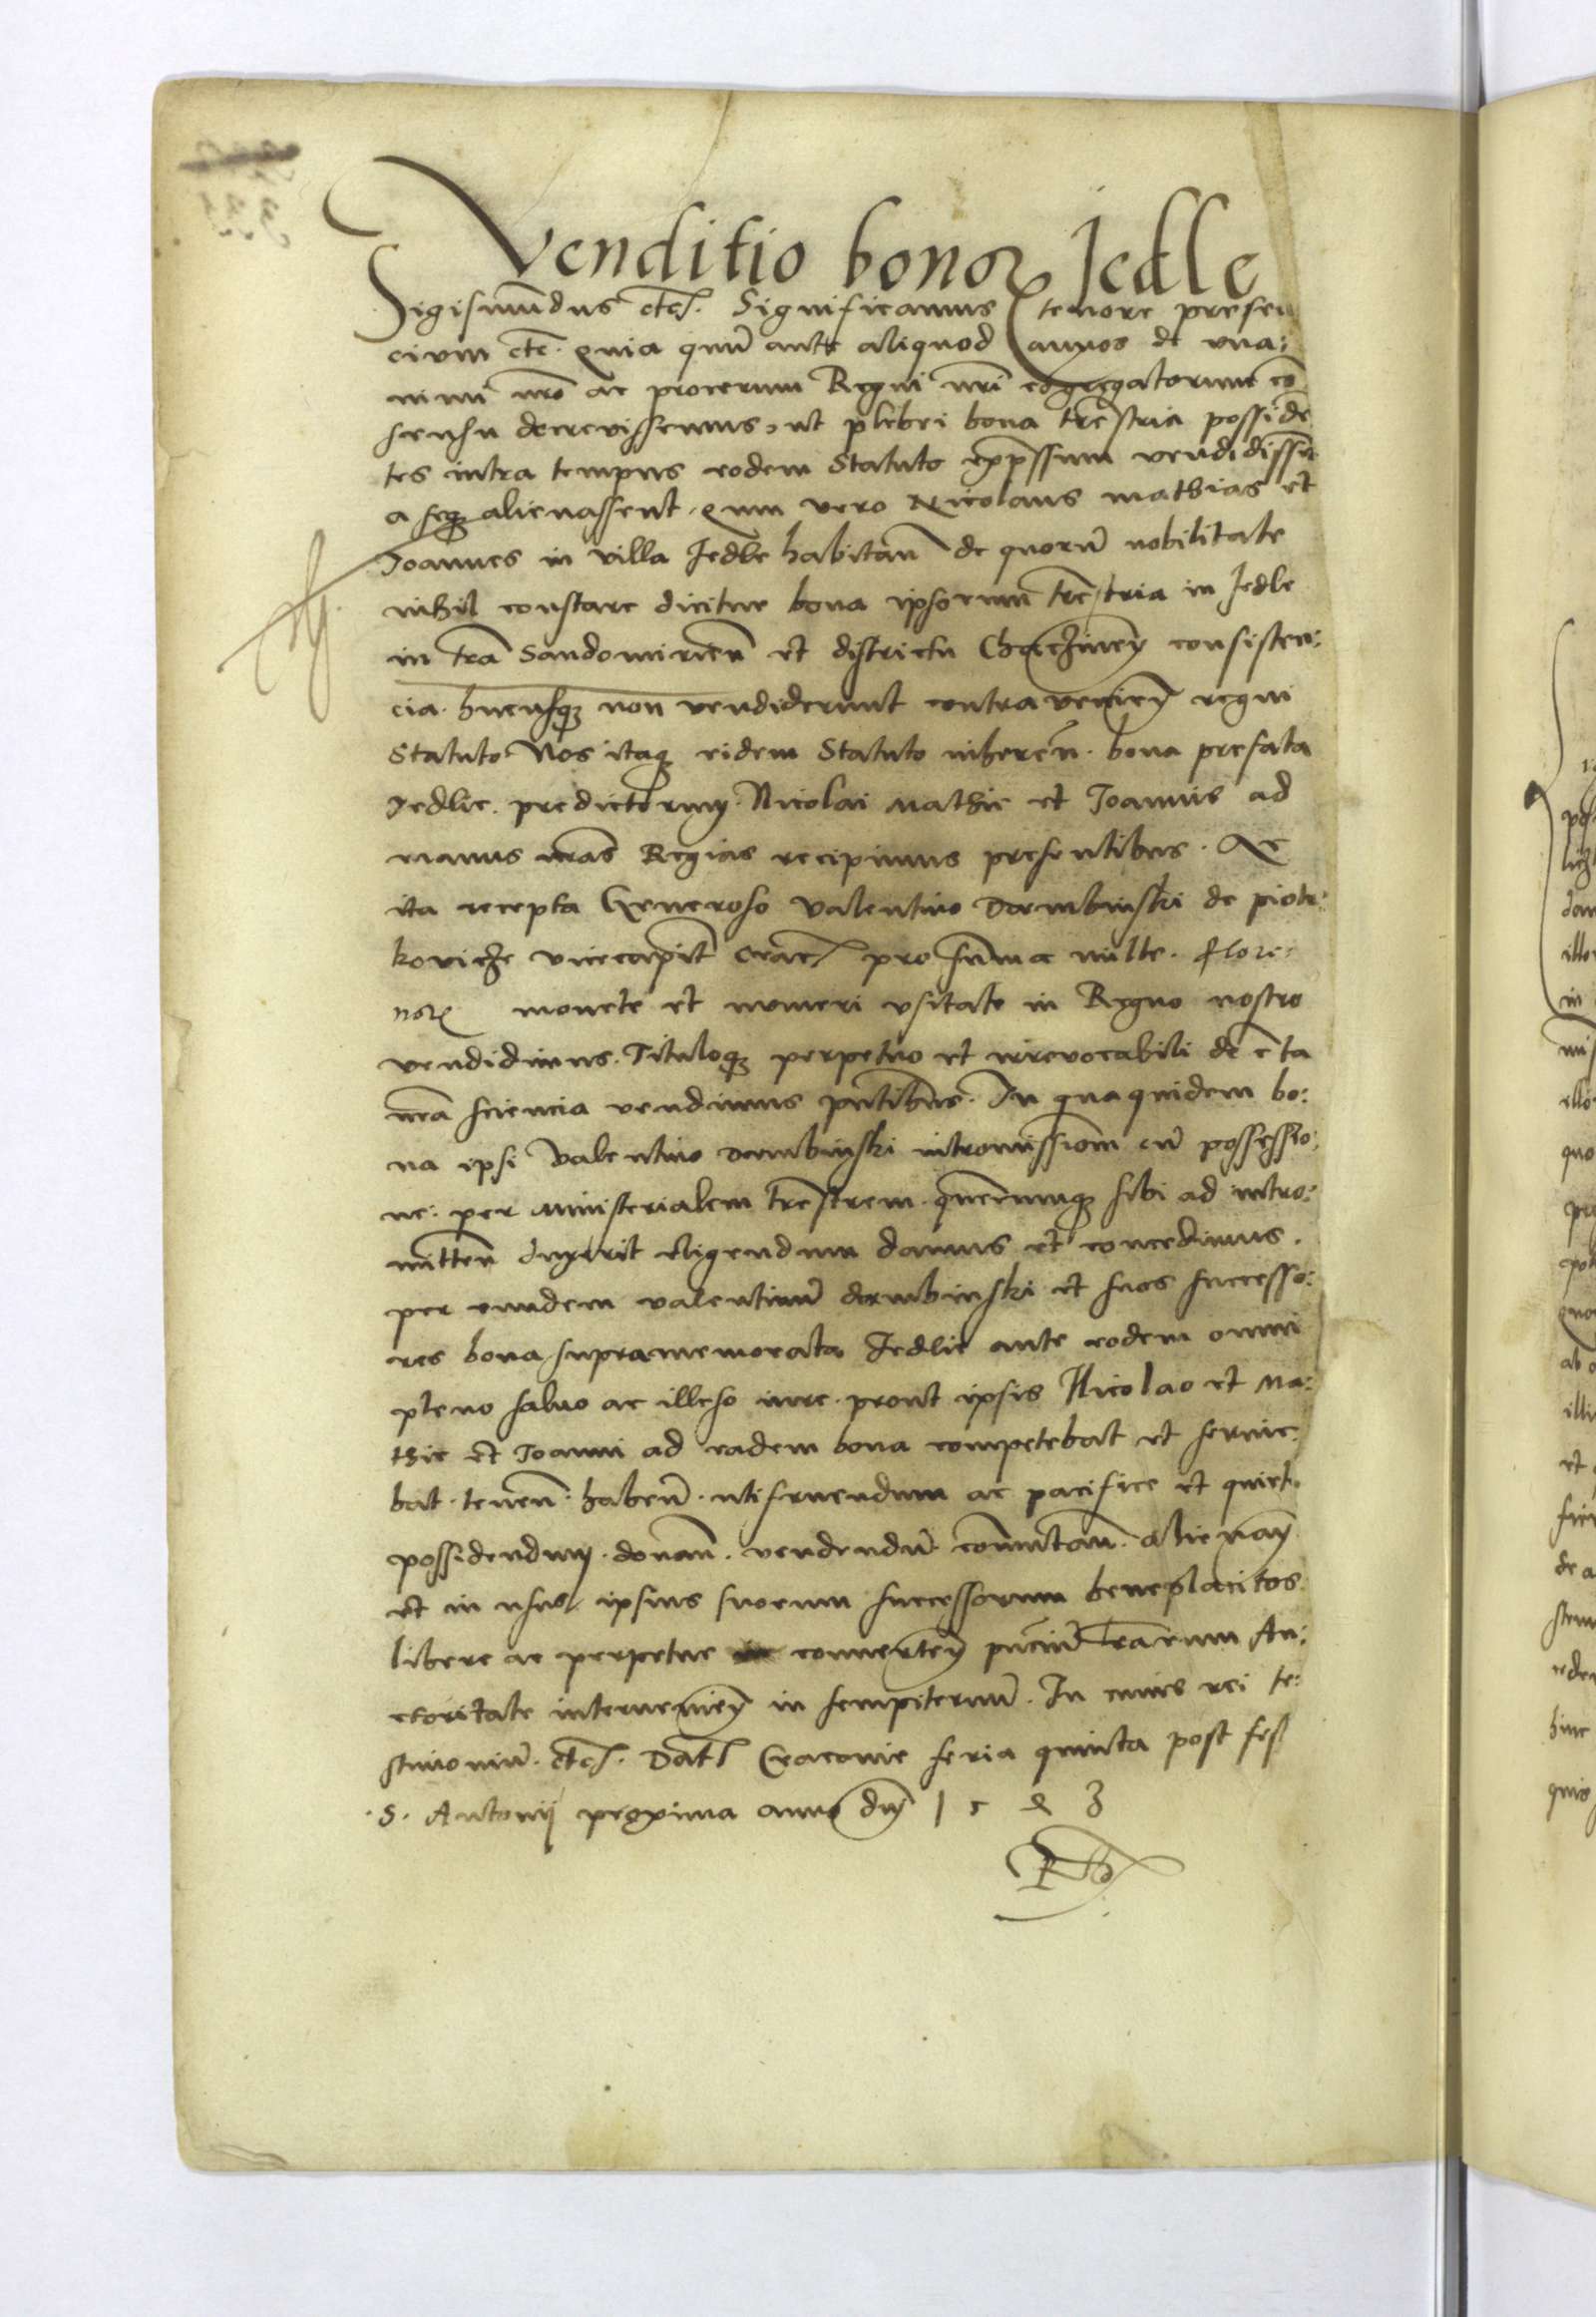 Venditio bonoꝝ Jedle
Sigismu̅dus etc. Significamus tenore presen
cium etc. quia qm̅ ante aliquod annos de vna:
nimi nr̅o ac procerum Regni nr̅i co̅gregatorum co̅
sensu decrevissemus, ut plebei bona tr̅estria posside̅
tes intra tempus eodem Statuto exp̅ssum vendidisse̅t
a seqꝫ alienassent. qum vero Nicolaus mathias et
Joannes in villa Jedle habitan̅ de quoru̅ nobilitate
nihil constare dicitur bona ipsorum tr̅estria in Jedle
in tr̅a Sandomirien̅ et districtu Chacziney consisten:
cia. hucusqꝫ non vendiderunt contravenien̅ regni
Statuto Nos itaqꝫ eidem Statuto inheren̅. bona prefata
Jedlie. predictorum. Nicolai Mathie et Joannis ad
manus nr̅as Regias recipimus presentibus. Ac
ita recepta Generoso Valentino Dembinski de piotr:
koviche vicecapit̅ crac̅ pro summa mille. flore:
noꝝ monete et numeri vsitate in Regno nostro
vendidimus. Tituloqꝫ perpetuo et irrevocabili de c̅ta
nr̅a sciencia vendimus pn̅tibus. In qua quidem bo:
na ipsi Valentino dembinski intromissiom̅ cu̅ possessio:
ne: per Ministerialem tr̅estrem. quemcumqꝫ sibi ad intro:
mitten̅ duxerit eligendum damus et concedimus.
per eundem valentinu̅ dembinski et suos successo:
res bona supramemorata Jedlie ante eodem omni
pleno salvo ac illeso iure. prout ipsis Nicolao et Ma:
thie et Joanni ad eadem bona competebat et servie:
bat. tenen̅. haben̅. utifruendum ac pacifice et quiete
possidendum. donan̅. vendendu̅. commutan̅. alienan̅
et in usus ipsius suorum successorum beneplacitos
libere ac perpetue converten̅ pn̅ciu̅ Lr̅arum Au:
ctoritate intervenien̅ in sempiternu̅. In cuius rei te:
stimoniu̅. etc. Dat̅ Cracovie feria quinta post fest
.S. Antonij proxima anno dn̅j